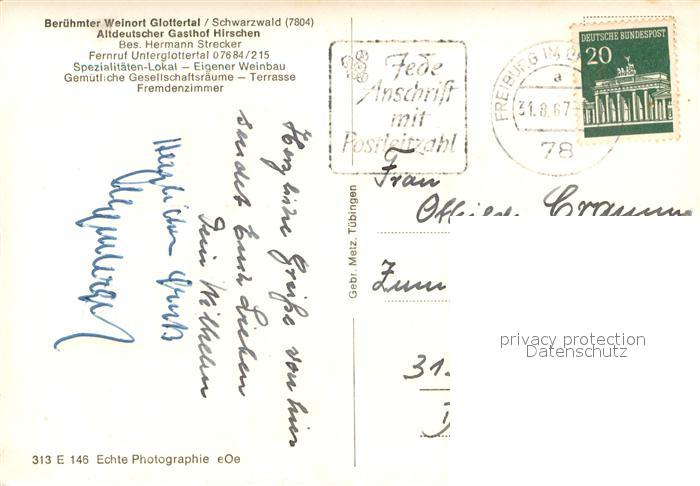 Berühmter Weinort Glottertal / Schwarzwald (7804)
Altdeutscher Gasthof Hirschen
Bes. Hermann Strecker
Fernruf Unterglottertal 07684/215
Spezialitäten-Lokal — Eigener Weinbau
Gemütliche Gesellschaftsräume — Terrasse
Fremdenzimmer
Jede
Anschrift
mit
Postleitzahl
FREIBURG IM
a
31.8.67
78
DEUTSCHE BUNDESPOST
20
Herzliche Grüße von hier
sendet Euch Lieben
Dein Wilhelm
Herzlichen Gruß
Gebr. Metz, Tübingen
Frau
Zum
31
privacy protection
Datenschutz
313 E 146 Echte Photographie eOe